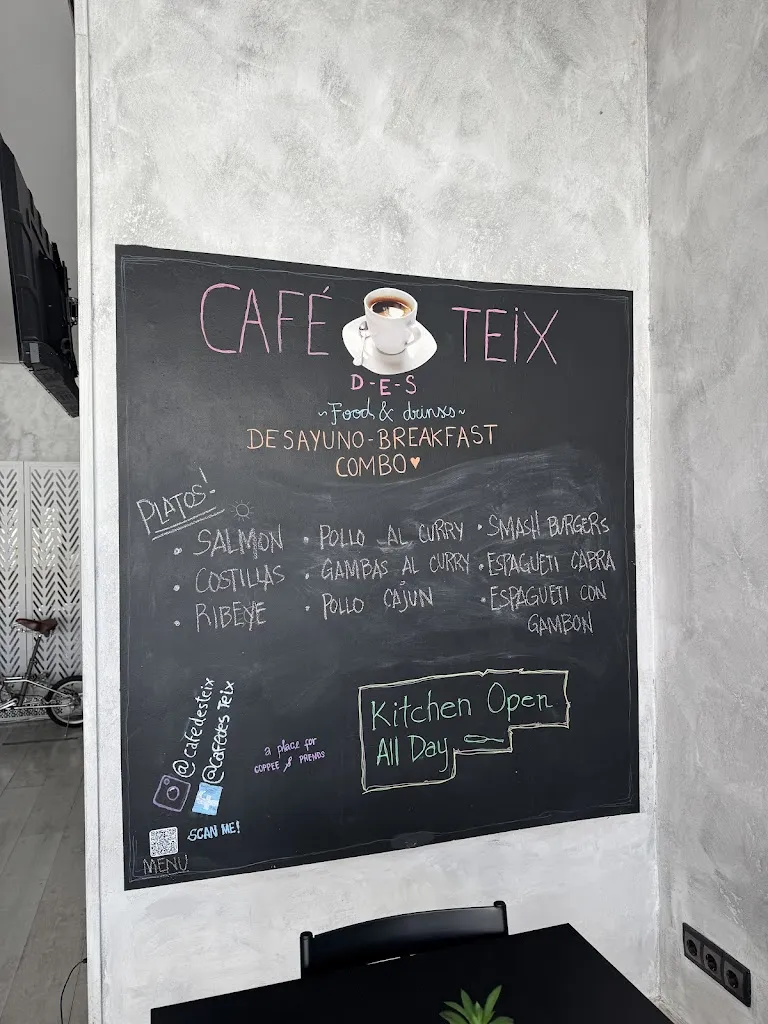 CAFÉ TEiX
D-E-S
~Food & drinks~
DESAYUNO-BREAKFAST
COMBO♥
PLATOS!
• SALMON
• COSTILLAS
• RIBEYE
• POLLO AL CURRY
• GAMBAS AL CURRY
• POLLO CAJUN
• SMASH BURGERS
• ESPAGUETI CABRA
• ESPAGUETI CON
GAMBON
@cafedesteix
@Cafedes Teix
a place for
COFFEE & FRIENDS
Kitchen Open
All Day
SCAN ME!
MENU